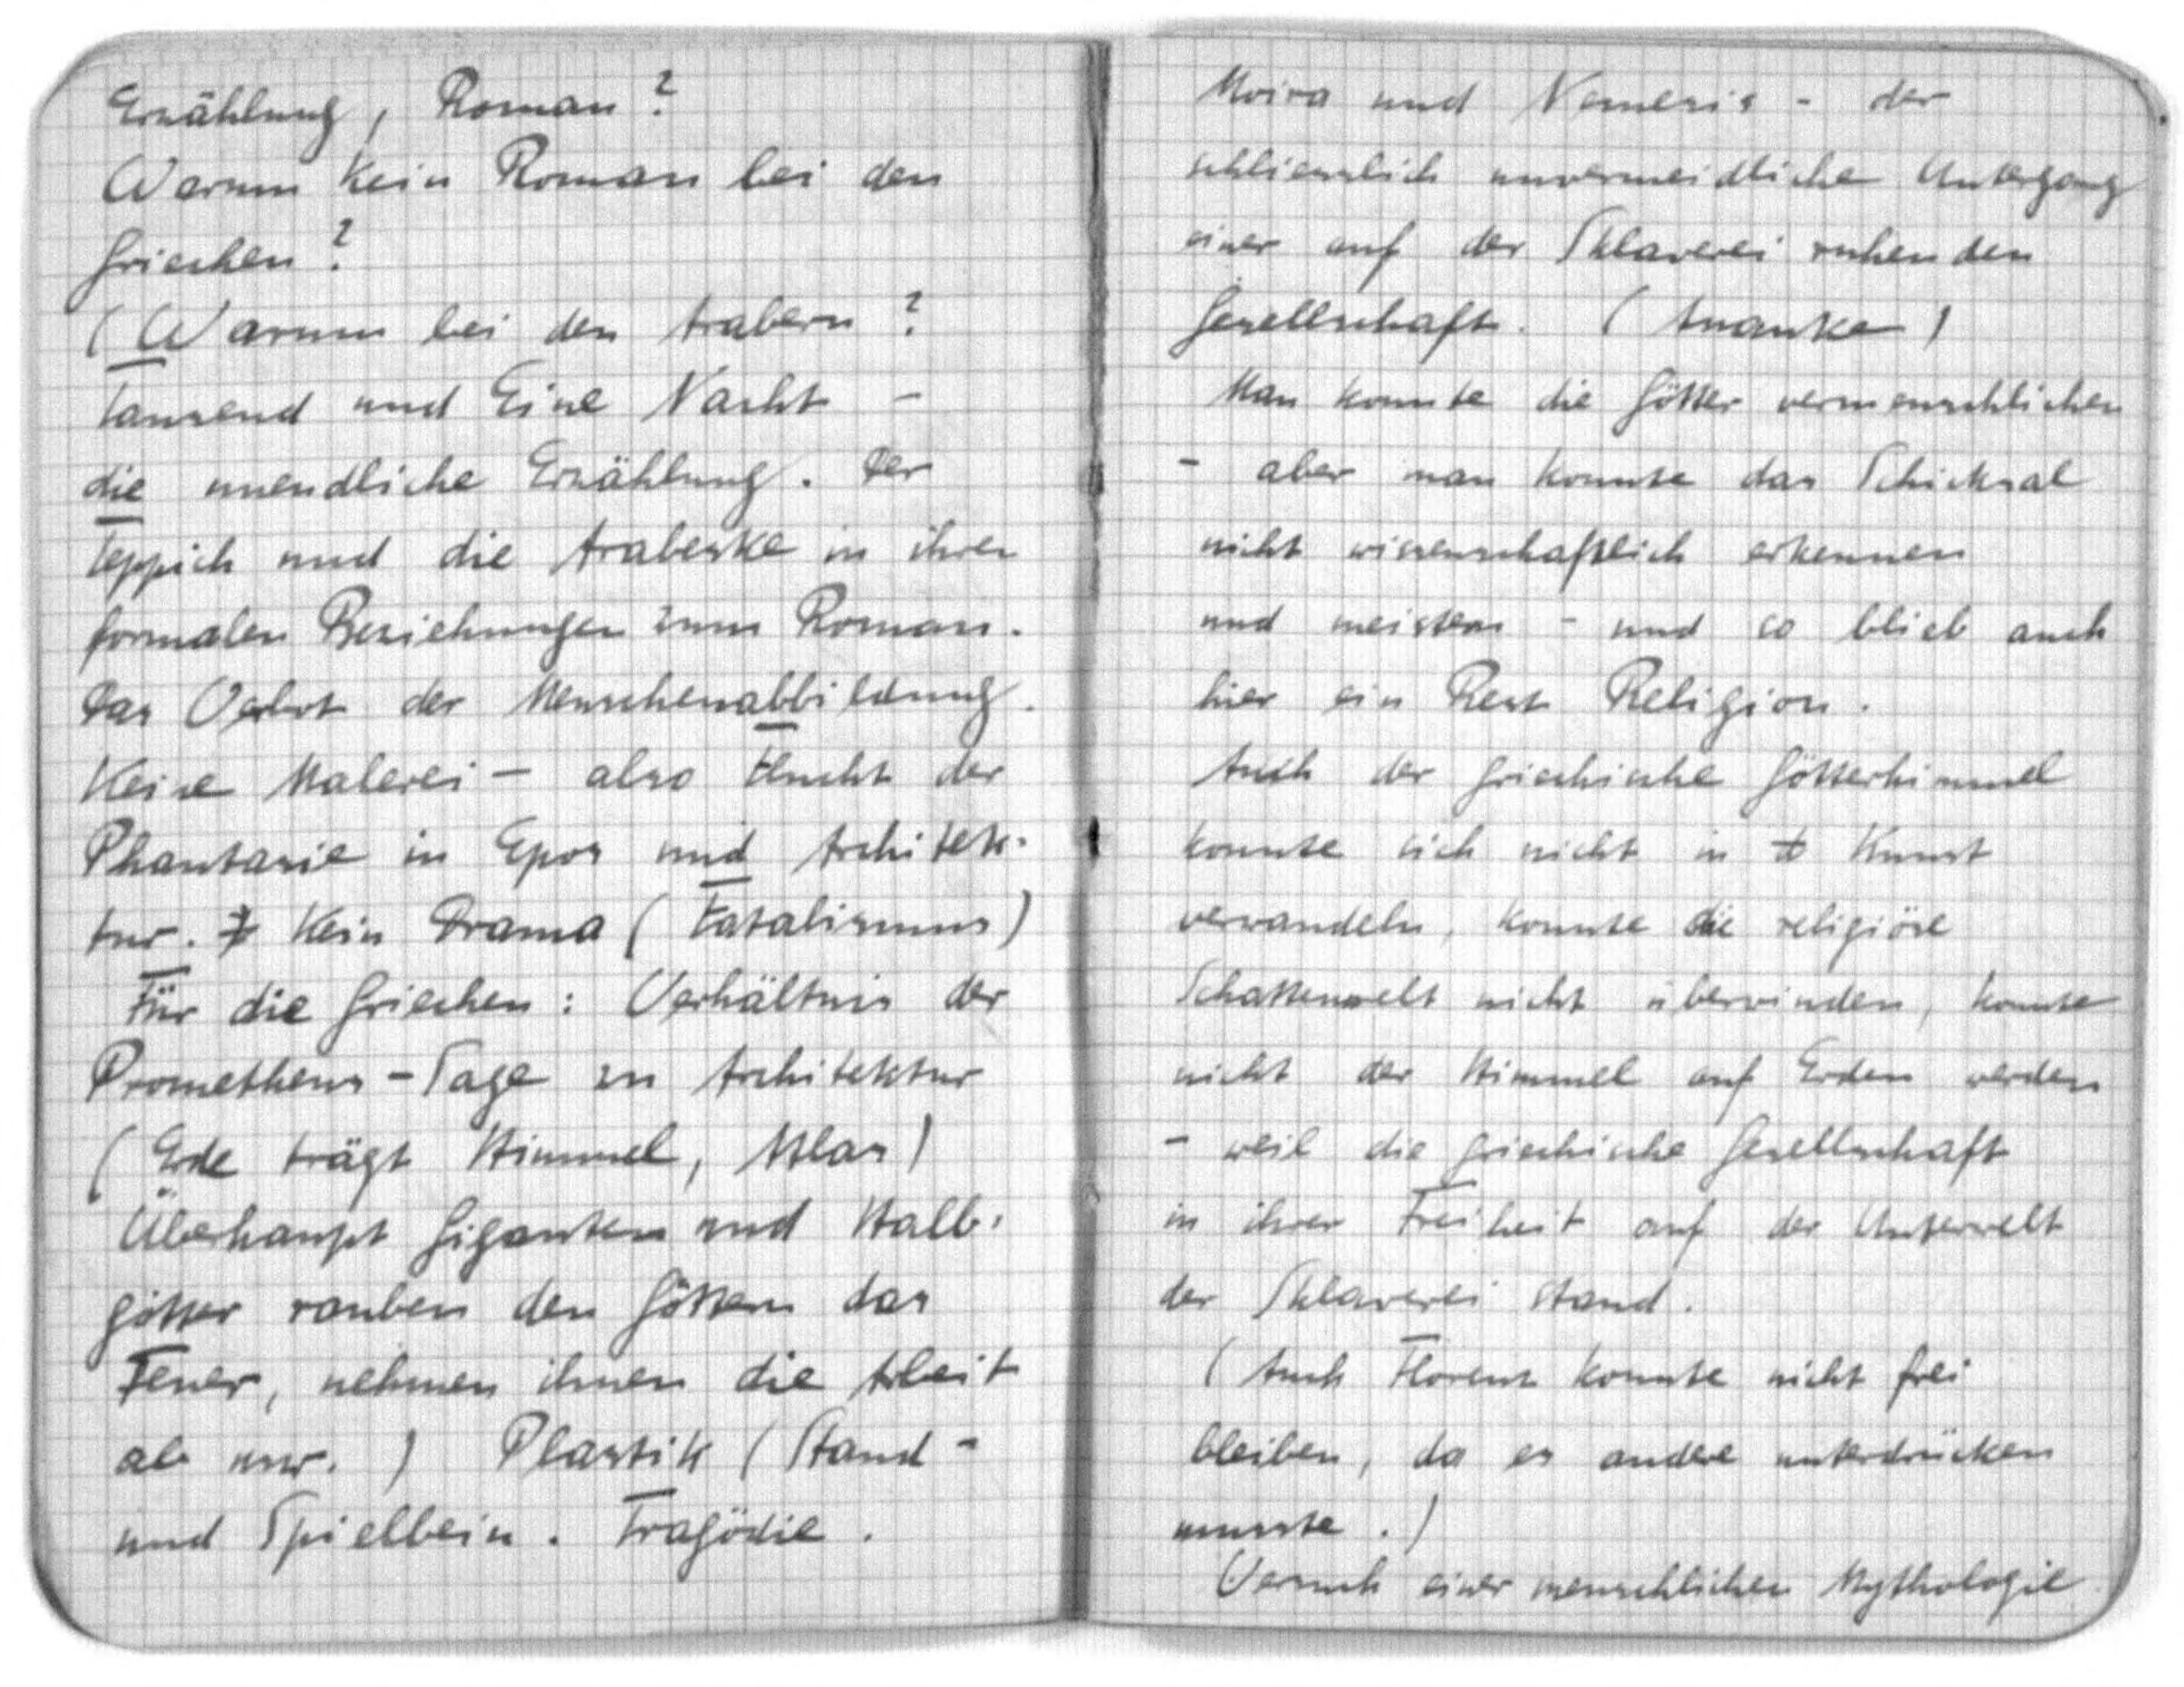 Erzählung, Roman?
Warum kein Roman bei den
Griechen?
(Warum bei den Arabern?
Tausend und Eine Nacht –
die unendliche Erzählung. Der
Teppich und die Arabeske in ihren
formalen Beziehungen zum Roman.
Das Verbot der Menschenabbildung.
Keine Malerei – also Flucht der
Phantasie in Epos und Architek-
tur. Kein Drama (Fatalismus)
Für die Griechen: Verhältnis der
Prometheus-Sage zu Architektur
(Erde trägt Himmel, Atlas)
Überhaupt Giganten und Halb-
götter rauben den Göttern das
Feuer, nehmen ihnen die Arbeit
ab usw.) Plastik (Stand-
und Spielbein. Tragödie.
Moira und Nemesis - der
schliesslich unvermeidliche Untergang
einer auf der Sklaverei ruhenden
Gesellschaft. (Ananke)
Man konnte die Götter vermenschlichen
- aber man konnte das Schicksal
nicht wissenschaftlich erkennen
und meistern - und so blieb auch
hier ein Rest Religion.
Auch der griechische Götterhimmel
konnte sich nicht in Kunst
verwandeln, konnte die religiöse
Schattenwelt nicht überwinden, konnte
nicht der Himmel auf Erden werden
- weil die griechische Gesellschaft
in ihrer Freiheit auf der Unterwelt
der Sklaverei stand.
(Auch Florenz konnte nicht frei
bleiben, da es andere unterdrücken
musste.)
Versuch einer menschlichen Mythologie